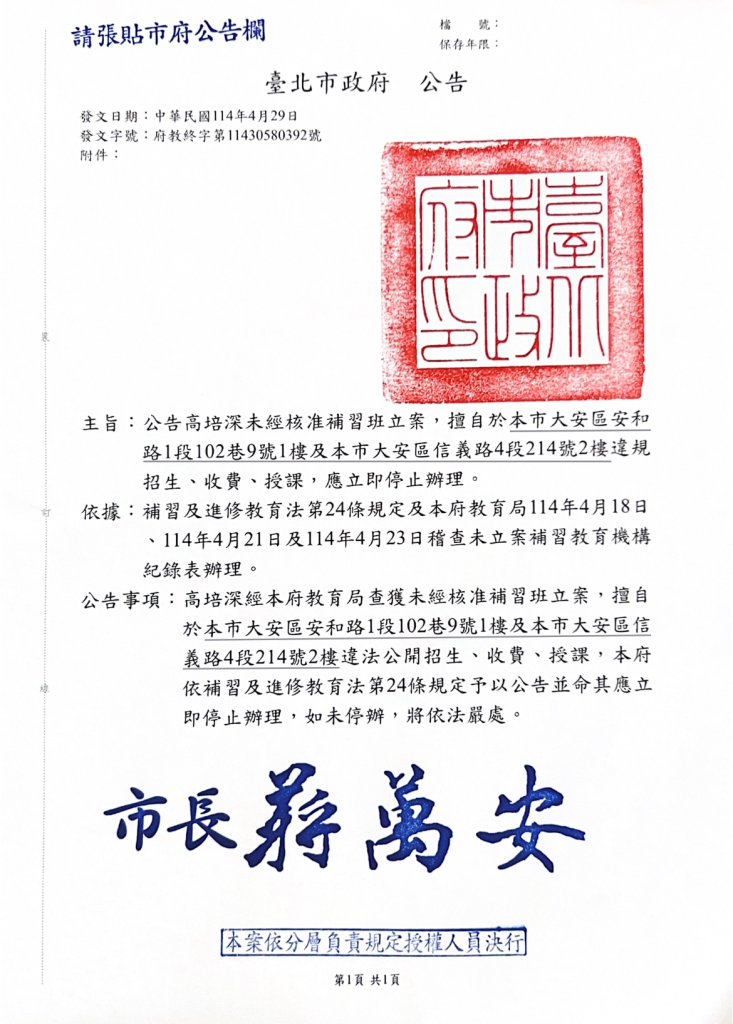 請張貼市府公告欄
檔　　號：
保存年限：
臺北市政府　公告
發文日期：中華民國114年4月29日
發文字號：府教終字第11430580392號
附件：
臺北市政府印
主旨：公告高培深未經核准補習班立案，擅自於本市大安區安和
路1段102巷9號1樓及本市大安區信義路4段214號2樓違規
招生、收費、授課，應立即停止辦理。
依據：補習及進修教育法第24條規定及本府教育局114年4月18日
、114年4月21日及114年4月23日稽查未立案補習教育機構
紀錄表辦理。
公告事項：高培深經本府教育局查獲未經核准補習班立案，擅自
於本市大安區安和路1段102巷9號1樓及本市大安區信
義路4段214號2樓違法公開招生、收費、授課，本府
依補習及進修教育法第24條規定予以公告並命其應立
即停止辦理，如未停辦，將依法嚴處。
裝
訂
線
市長蔣萬安
本案依分層負責規定授權人員決行
第1頁 共1頁